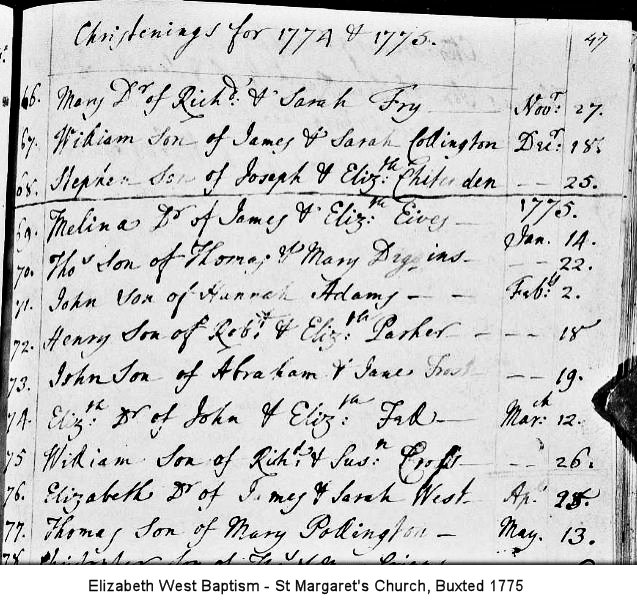 Christenings for 1774 & 1775. 47
66. Mary Dr of Richd: & Sarah Fry Novr: 27.
67. William Son of James & Sarah Collington Decr: 18.
68. Stephen Son of Joseph & Eliz:th Chitenden -- 25.
1775.
69. Melina Dr of James & Eliz:th Eives Jan. 14.
70. Thos Son of Thomas & Mary Diggins -- 22.
71. John Son of Hannah Adams -- Feb:y 2.
72. Henry Son of Robt: & Eliz:th Parker -- 18
73. John Son of Abraham & Jane Frost -- 19.
74. Eliz:th Dr of John & Eliz:th Fall Marcch 12.
75 William Son of Richd: & Sus:n Cross -- 26.
76. Elizabeth Dr of James & Sarah West Ap:
77. Thomas Son of Mary Pollington - May. 13.
78.
Elizabeth West Baptism - St Margaret's Church, Buxted 1775